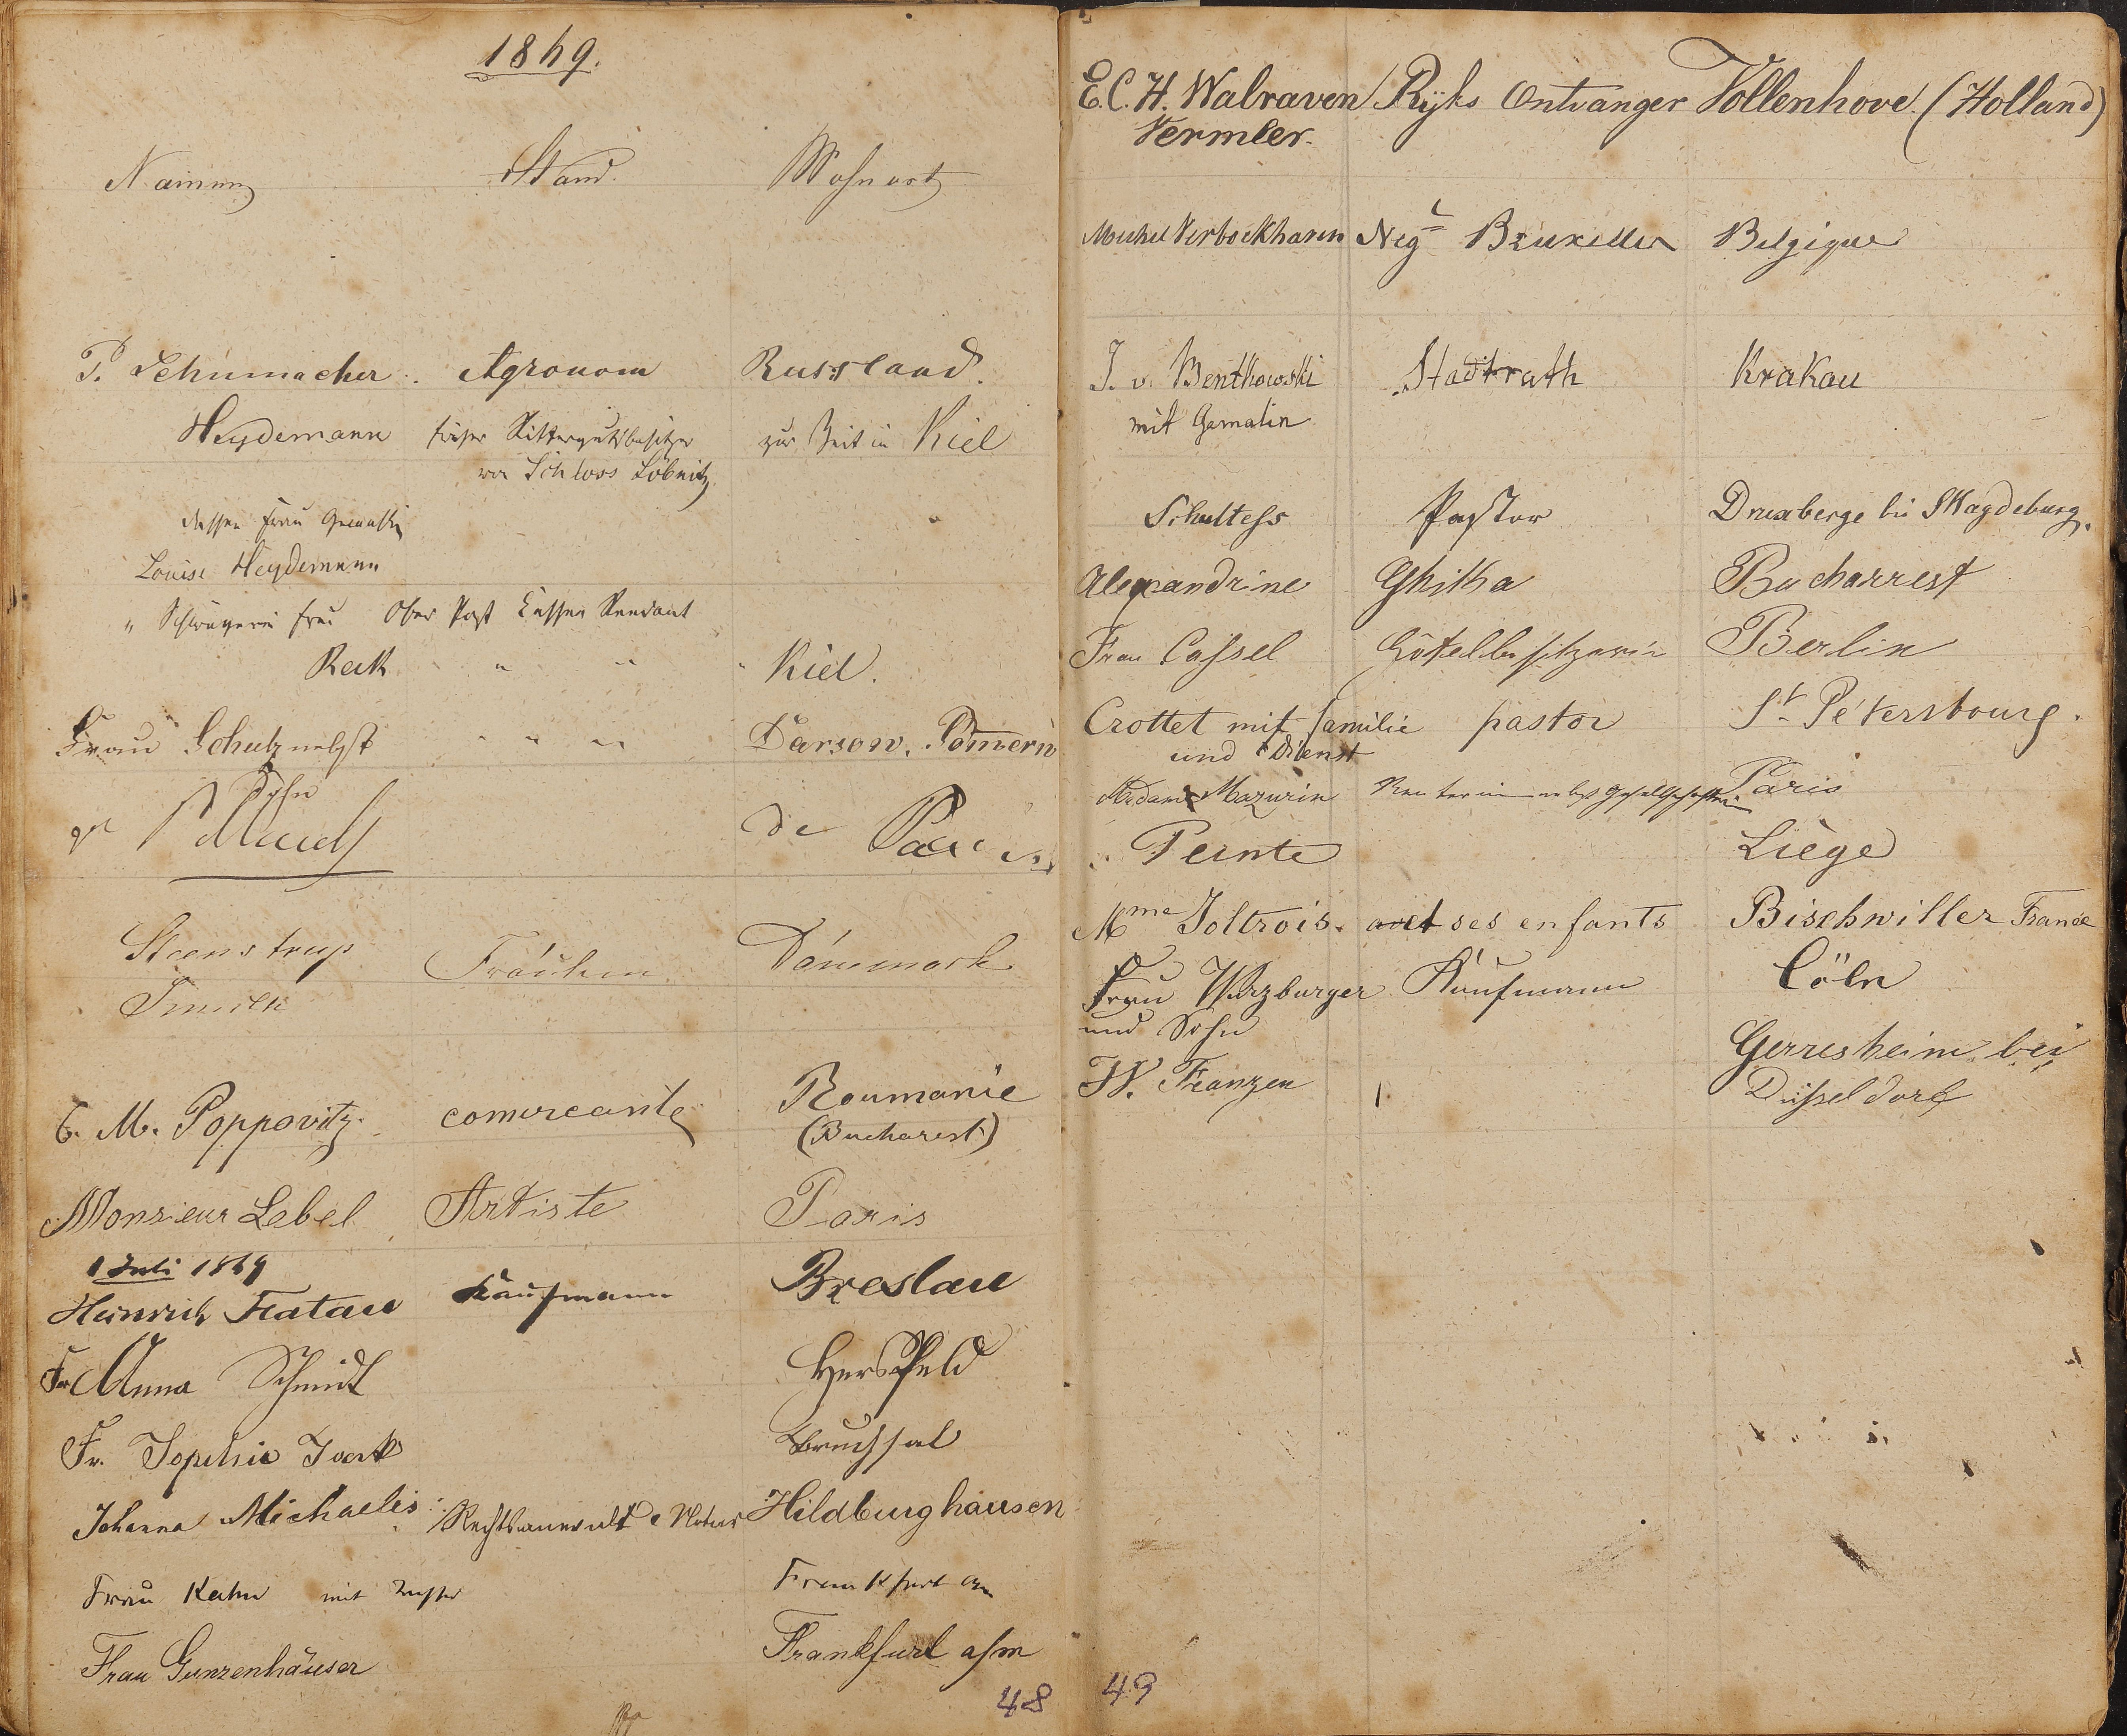 1869.
Namen Stand. Wohnort
P. Schumacher. Agronom Russland.
Heydemann früher Rittergutsbesitzer zur Zeit in Kiel
von Schloss Löbnitz
dessen Frau Gemahlin
Louise Heydemann
" Schwägerin Frau Ober Post Kassen Rendant
Reck " " " Kiel.
Frau Schulz nebst " " " Darsow. Pommern
Sohn
de Paris
Steenstrup Fräulein Dänemark
C. M. Poppovitz. comercante Roumanie
(Bucharest)
Monsieur Lebel Artiste Paris
1 Juli 1869
Heinrich Flatau Kaufmann Breslau
Fr Anna Schmidt Hersfeld
Fr. Sophie Bruchsal
Johanna Michaelis Rechtsanwalt & Notar Hildburghausen
Frau Kahn mit Tochter Frankfurt am
Frau Gunzenhäuser Frankfurt a/m
48
E. C. H. Walraven Ryks Ontvanger Vollenhove (Holland)
Vermeer.
Michel Verboekhaven Negt Bruxelles Belgique
J. v. Benthowski Stadtrath Krakau
mit Gemalin
Schultess Pastor Druxberge bei Magdeburg.
Alexandrine Ghitha Bucharrest
Frau Cassel Hôtelbesitzerin Berlin
Crottet mit familie pastor St. Pétersbourg.
und Dienst
Madame Mazurin Renterin nebst Gesellschafterin Paris
Peinte Liège
Mme Joltrois. et ses enfants Bischwiller France
Frau Würzburger Kaufmann Cöln
und Sohn
W. Franzen Gerresheim bei
Düsseldorf
49